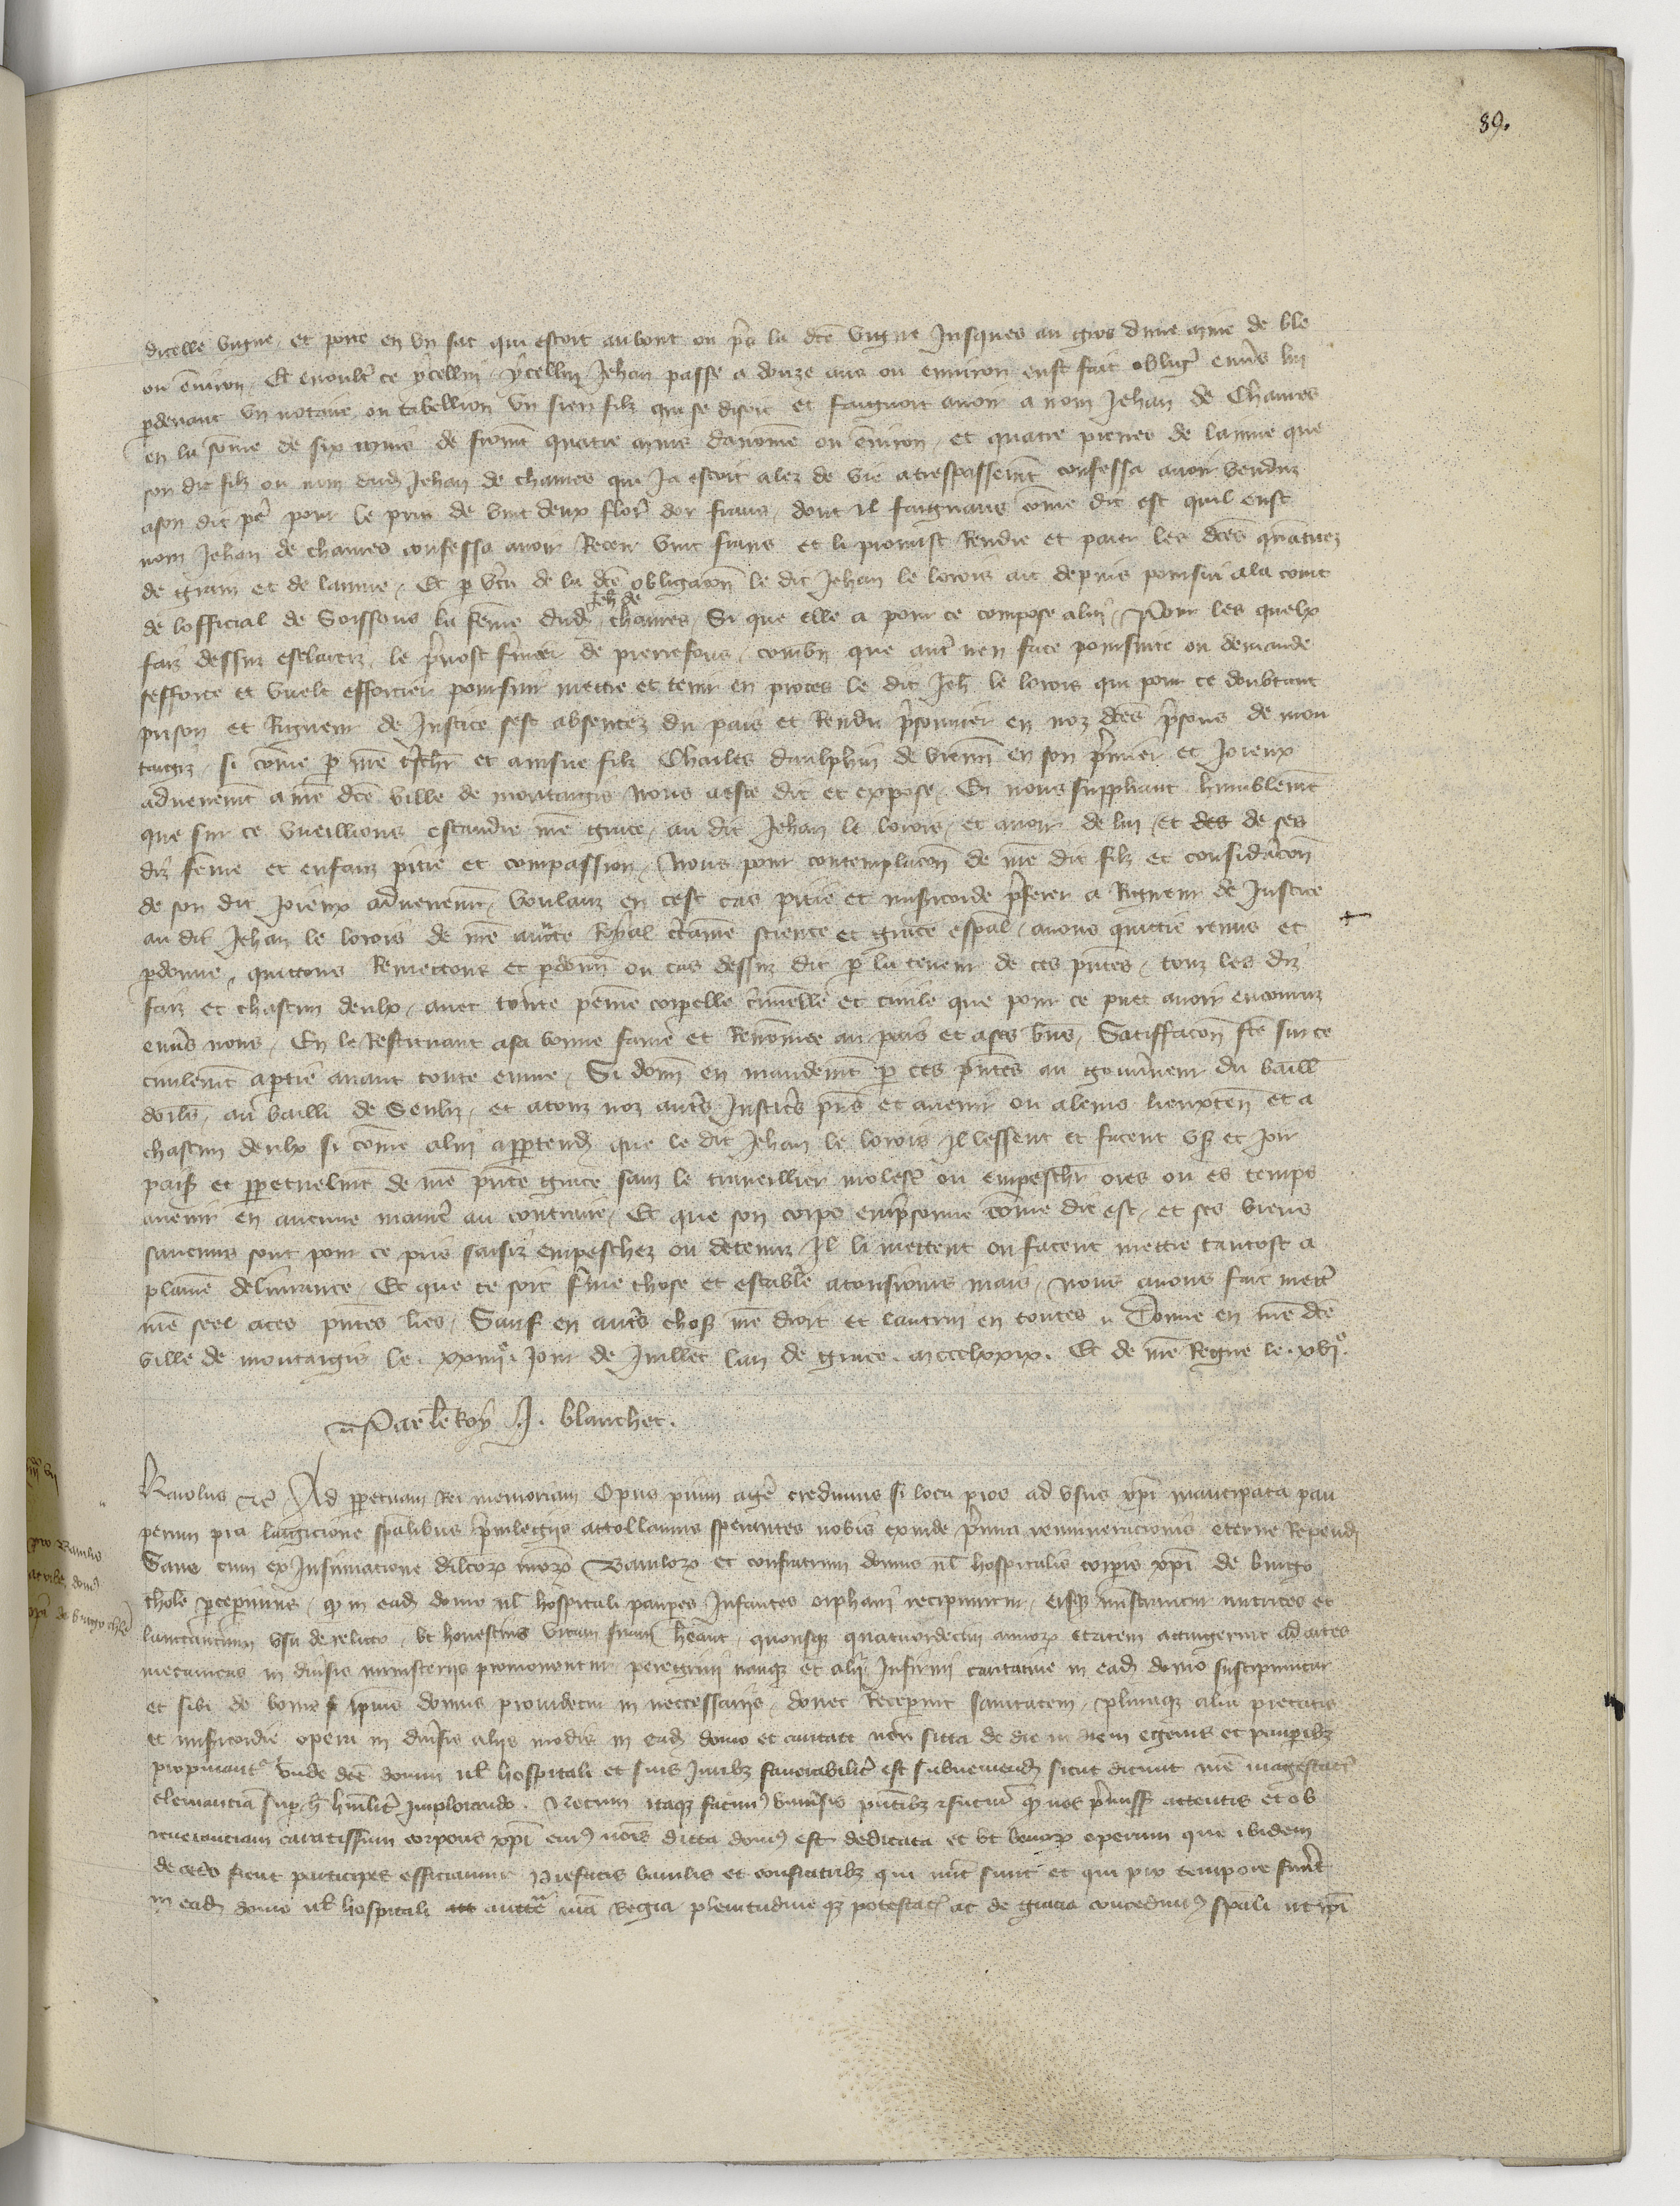 89.
dicelle vigne et porte en un sac qui estoit au bout ou pres la dce vigne Jusques au gros dune mine de ble
ou environ Et enoultre ce ycellui Jehan passe a douze ans ou environ eust fait obliger envers lui
pdevant un notaire ou tabellion un sien filz qui se disoit et faignoit avoir a nom Jehan de Chaures
en la somme de six muis de froment quatre muis davoine ou environ et quatre pierres de lainne que
son dit filz ou nom dud Jehan de chaures qui Ja estoit alez de vie a trespassement confessa avoir venduz
a son dit pere pour le pris de vint deux flor dor frans dont il faignans come dit est quil eust
nom Jehan de chaures confessa avoir Receu vint frans et li promist Rendre et paier les dces quantitez
de grain et de lainne Et p vertu de la dce obligacion le dit Jehan le lorois ait depuis poursui a la court
de lofficial de Soissons la feme dud Jeh de chaures Si que elle a pour ce compose a lui Pour les quelx
faiz dessuz esclarciz le prevost fermier de pierrefons combien que autre nen face poursuite ou demande
sefforce et vuelt efforcier poursuir mettre et tenir en proces le dit Jeh le lorois qui pour ce doubtant
prison et Rigueur de Justice sest absentez du pais et Rendu prisonnier en noz dces prisons de mon
targis si come p nre treschr et ainsne filz Charles daulphin de vienn en son premier et Joieux
advenement a nre dce ville de montargis nous a este dit et expose En nous suppliant humblement
que sur ce vueillions estandre nre grace au dit Jehan le lorois et avoir de lui et des de ses
diz feme et enfanz pitie et compassion Nous pour contemplacion de nre dit filz et consideracion
de son dit Joieux advenement voulanz en cest cas pitie et misericorde preferer a Rigueur de Justice
au dit Jehan le lorois de nre auctorite Royal certaine science et grace espal avons quittie remis et
pdonne quittons Remettons et pdonn ou cas dessuz dit p la teneur de ces pntes touz les diz
faiz et chascun deulx avec toute peine corpelle criminelle et civile que pour ce puet avoir encouruz
envers nous En le Restituant a sa bonne fame et Renomee au pais et a ses biens Satiffacion fte sur ce
civilement a partie avant toute euvre Si donn en mandement p ces pntes au gouverneur du baill
dorlns au bailli de Senliz et a touz noz autres Justiciers pns et avenir ou a leurs lieuxten et a
chascun deulx si come a lui appartend que le dit Jehan le lorois il lessent et facent user et Joir
paisi et perpetuelment de nre pnte grace sanz le traveillier molest ou empeschr ores ou es temps
avenir en aucune maniere au contraire Et que son corps emprisonne come dit est et ses biens
saucuns sont pour ce pris saisiz empeschez ou detenuz Il li mettent ou facent mettre tantost a
plaine delivrance Et que ce soit ferme chose et estable a tousiours mais nous avons fait mettr
nre seel a ces pntes lres Sauf en autres choses nre droit et lautrui en toutes Donne en nre dce
ville de montargis le xxiiii Jour de Juillet lan de grace mccclxxix Et de nre Regne le xvi
Par le Roy J. blanchet.
Karolus etc Ad perpetuam Rei memoriam Opus pium agere credimus si loca pios ad usus xpi mancipata pau
perum pia largicione spalibus privilegiis attollamus sperantes nobis exinde premia remuneracionis eterne Rependi
Sane cum ex Insinuacione dilcorum nrorum Baiulorum et confratrum domus ul hospitalis corporis xpi de burgo
chole percepimus q in ead domo ul hospitali pauperes Infantes orphani recipiuntur eisque ministrantur nutrices et
usu de relicto ut honestius vitam suam heant quousque quatuordecim annorum etatem attingerint ad artes
mecanicas in diversis ministeriis promoventur peregrini nanque et alii Infirmi caritative in ead domo suscipiuntur
et sibi de bonis ipius domus providetur in neccessariis donec Receperint sanitatem plurimaque alia pietatis
et misericordie opera in diversis aliis modis in ead domo et civitate de die in diem egenis et pauperibus
unde dce domui ul hospitali et suis Juribus favorabiliter est subveniend sicut dicunt nre magestatis
clemanciam sup h humiliter implorando Notum itaque facimus universis pntibus et futuris q nos premiss attentis et ob
reveranciam caratissimi corporis xpi cuius nois dicta domus est dedicata et ut bonorum operum que ibidem
de cetero fient participes efficiamur Prefatis baiulis et confratribus qui nunc sunt et qui pro tempore fuerint
in ead domo ul hospitali auctte nra Regia plenitudineque potestatis ac de gracia concedimus spali ut ipi